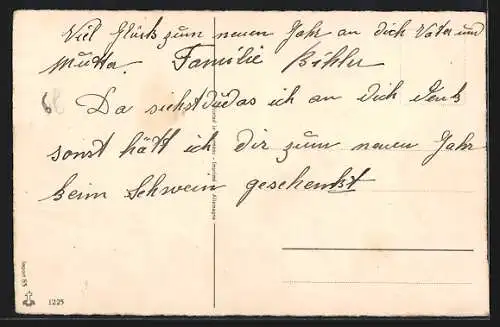 Viel Glück zum neuen Jahr an dich Vater und
Mutter. Familie Bihler
Da siehst du das ich an dich denk
sonst hätt ich dir zum neuen Jahr
keim Schwein geschenkt
Import 85
1225